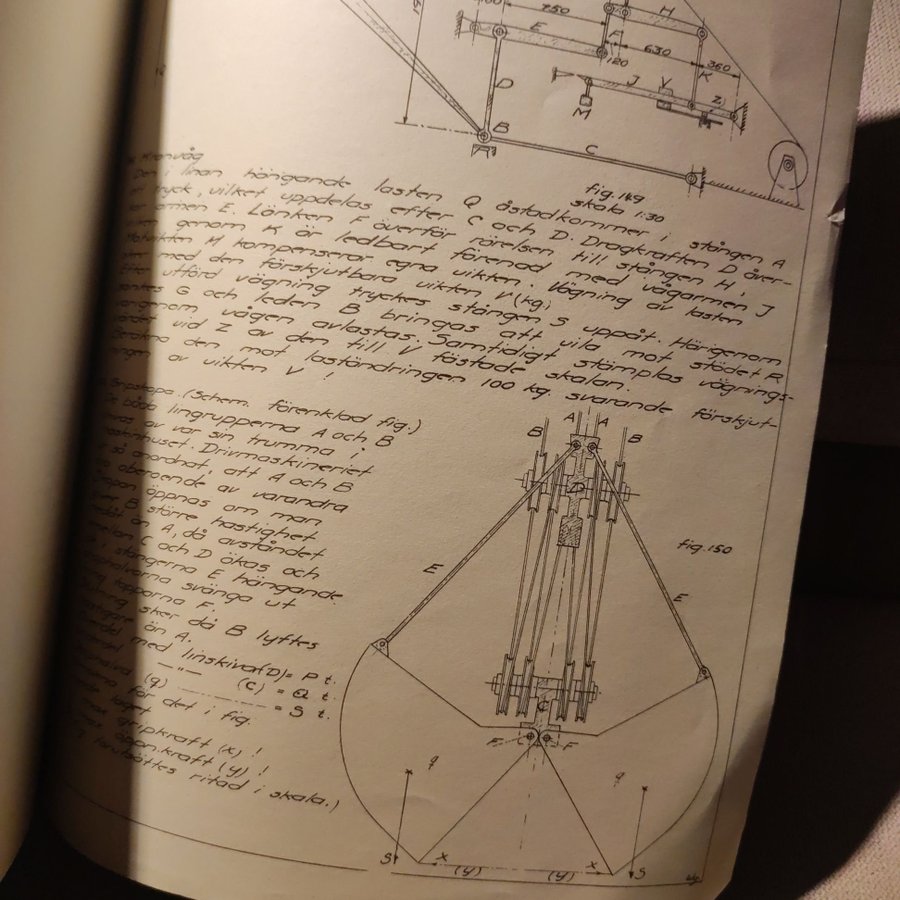 750
H
E
F
630
360
120
K
D
J
V
Z
M
B
C
fig. 149
skala 1:30
Kranvåg
Den i linan hängande lasten Q åstadkommer i stången A
tryck, vilket uppdelas efter C och D. Dragkraften D över-
armen E. Länken F överför rörelsen till stången H,
genom K är ledbart förenad med vågarmen J
Motvikten M kompenserar egna vikten. Vägning av lasten
med den förskjutbara vikten V (kg)
Efter utförd vägning tryckes stången S uppåt. Härigenom
G och leden B bringas att vila mot stödet R
varigenom vågen avlastas. Samtidigt stämplas vägnings-
vid Z av den till V fästade skalan.
Beräkna den mot laständringen 100 kg. svarande förskjut-
ningen av vikten V !
Gripskopa. (Schem. förenklad fig.)
De båda lingrupperna A och B
av var sin trumma i
maskinhuset. Drivmaskineriet
så anordnat, att A och B
oberoende av varandra
öppnas om man
B större hastighet
än A, då avståndet
mellan C och D ökas och
i stängerna E hängande
svänga ut
tapparna F.
sker då B lyftes
än A.
med linskivor (D) = P t.
—"— (C) = Q t.
(q) = S t.
för det i fig.
läget
gripkraft (x) !
öppn.kraft (y) !
förutsättes ritad i skala.)
A A
B B
D
fig. 150
E E
C
F F
q q
S x x S
(y) (y)